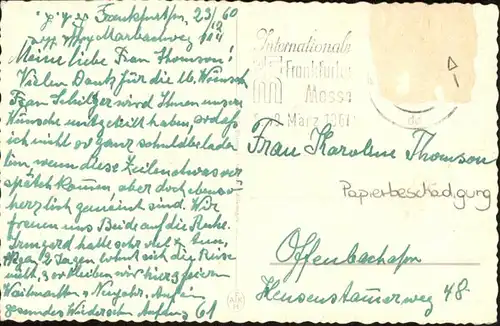 Frankfurt/M 23/12 60
Marbachweg
Meine liebe Frau Thomson!
Vielen Dank für die lb. Wünsche
Frau Schilger wird Ihnen unsere
Wünsche mitgeteilt haben, sodaß
ich nicht so ganz schuldbeladen
bin, wenn diese Zeilen etwas ver
spätet kommen aber doch ebenso
herzlich gemeint sind. Wir
freuen uns Beide auf die Ruhe.
Irmgard hatte sehr viel z. tun,
wegen 2 Tagen lohnt sich die Reise
nicht, so bleiben wir hier, feiern
Weihnachten u. Neujahr. Auf ein
gesundes Wiedersehen Anfang 61
Internationale
Frankfurter
Messe
März 1961
Frau Karoline Thomson
Papierbeschädigung
Offenbach
Hensenstamerweg 48